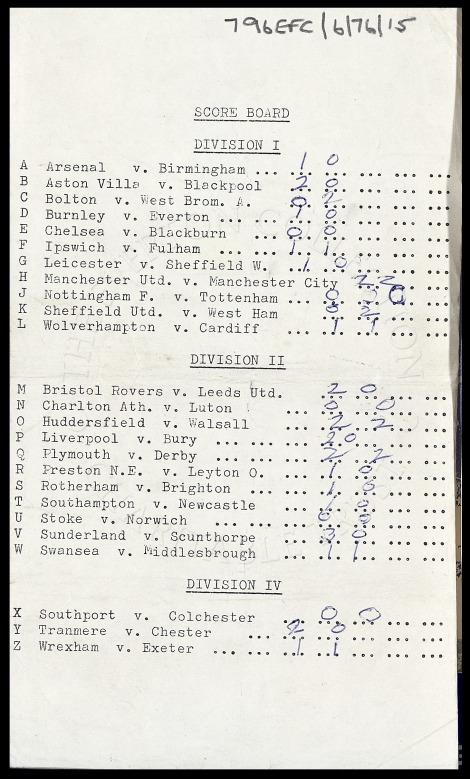 796EFC/6/76/15
SCORE BOARD
DIVISION I
A Arsenal v. Birmingham ... 1 0
B Aston Villa v. Blackpool 2 0
C Bolton v. West Brom. A. 0 2
D Burnley v. Everton ... 1 0
E Chelsea v. Blackburn ... 0 0
F Ipswich v. Fulham ... 1 1
G Leicester v. Sheffield W. 1 0
H Manchester Utd. v. Manchester City 2 2
J Nottingham F. v. Tottenham ... 0 0
K Sheffield Utd. v. West Ham 2
L Wolverhampton v. Cardiff ... 1 1
DIVISION II
M Bristol Rovers v. Leeds Utd. 2 0
N Charlton Ath. v. Luton ... 0 0
O Huddersfield v. Walsall ... 2 2
P Liverpool v. Bury ... 2 0
Q Plymouth v. Derby ... 2 2
R Preston N.E. v. Leyton O. ... 1 0
S Rotherham v. Brighton ... 1 0
T Southampton v. Newcastle ... 1 0
U Stoke v. Norwich ... 0 0
V Sunderland v. Scunthorpe ... 3 0
W Swansea v. Middlesbrough ... 1 1
DIVISION IV
X Southport v. Colchester ... 0 0
Y Tranmere v. Chester ... 2 0
Z Wrexham v. Exeter ... 1 1